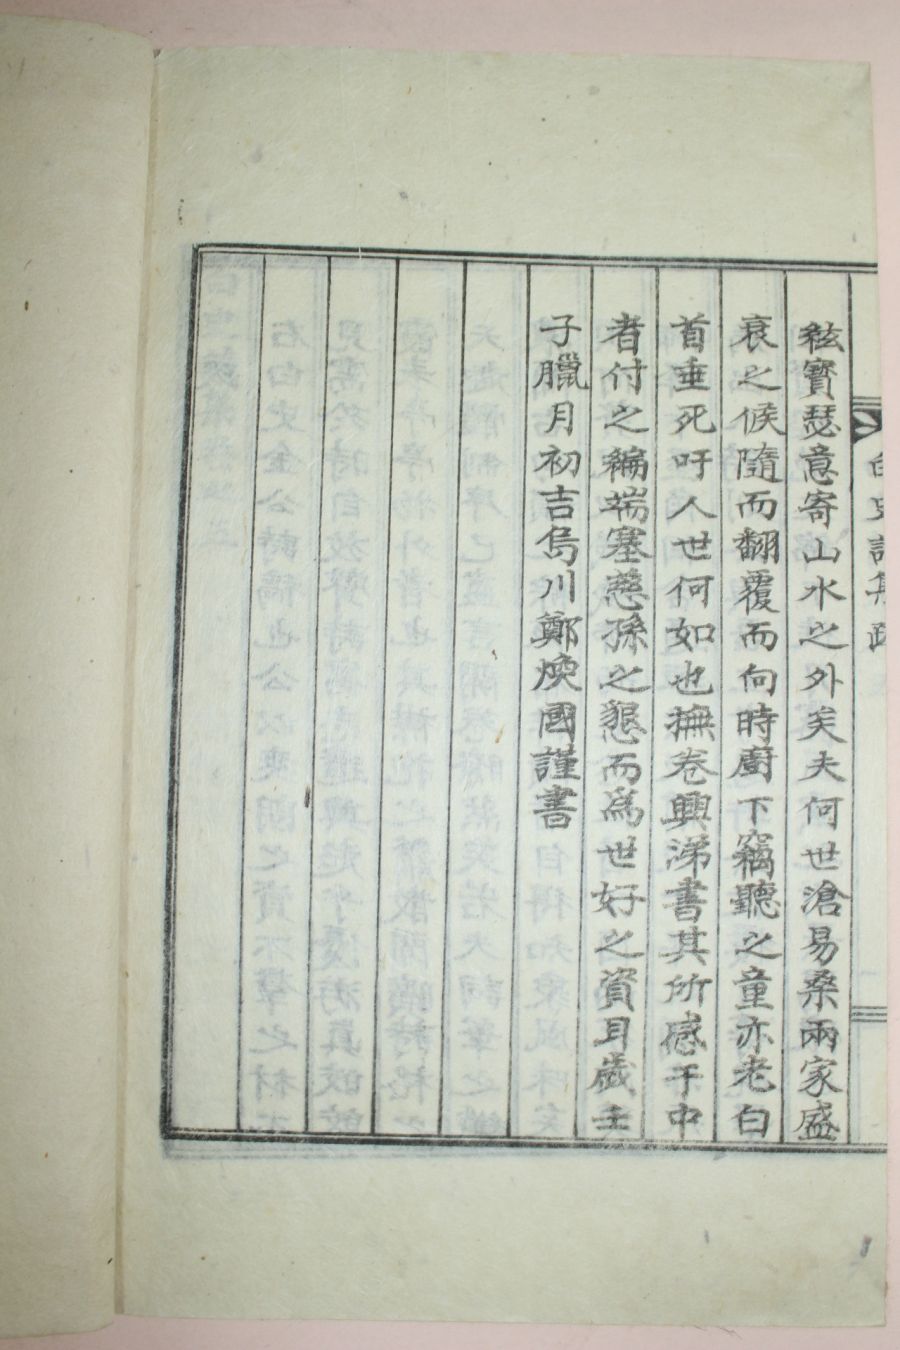 白史詩集跋
絃寶瑟意寄山水之外矣夫何世滄易桑兩家盛
衰之候隨而翻覆而向時廚下竊聽之童亦老白
首垂死吁人世何如也撫卷興涕書其所感于中
者付之編端塞慈孫之懇而爲世好之資耳歲壬
子臘月初吉烏川鄭煥國謹書